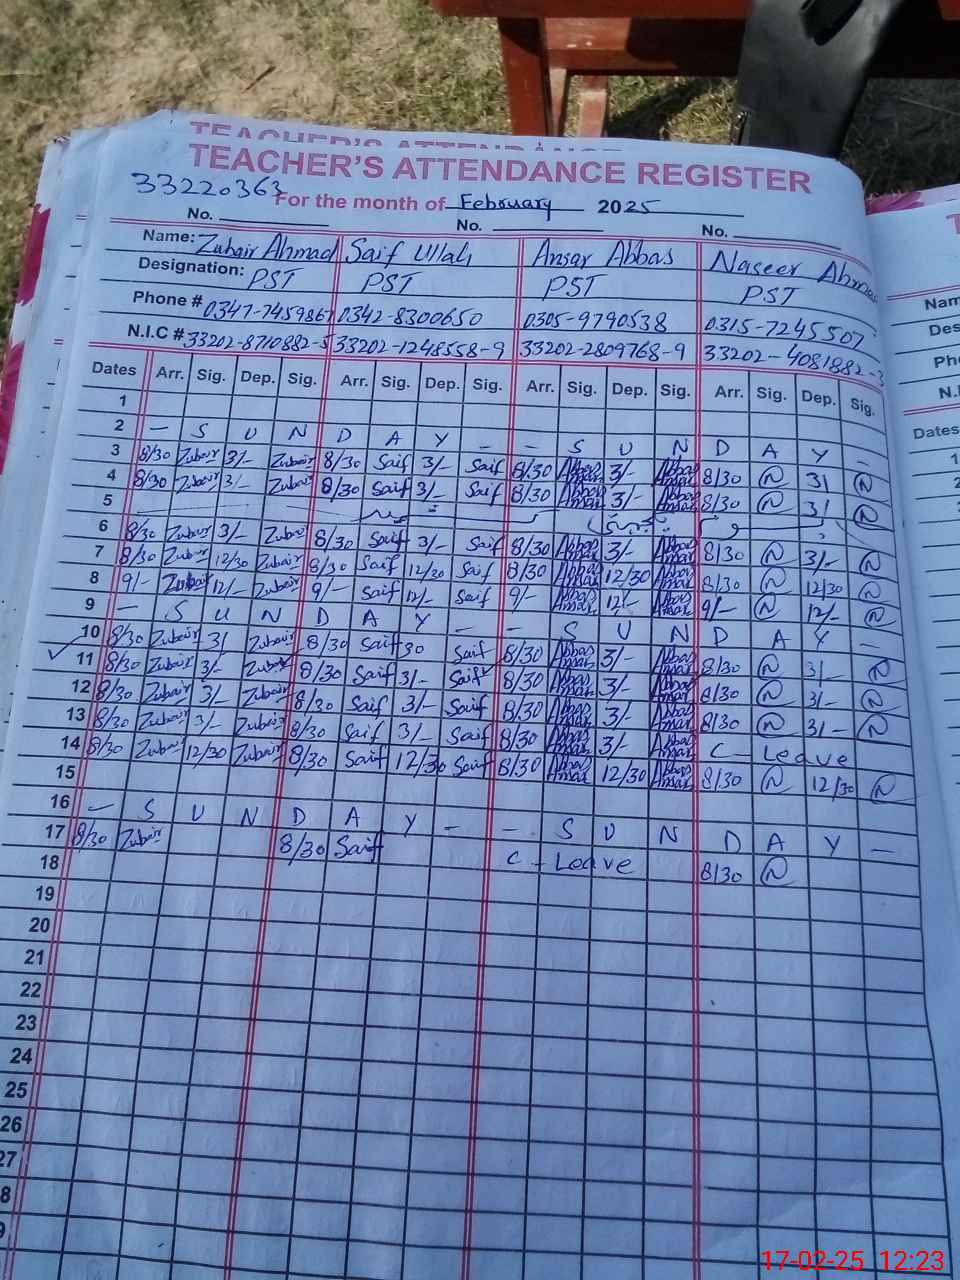 TEACHER'S ATTENDANCE
TEACHER'S ATTENDANCE REGISTER
33220363
For the month of February 2025
No. No. No.
Name: Zubair Ahmad Saif Ullah Ansar Abbas Naseer Ahmad
Designation: PST PST PST PST
Phone # 0347-7459867 0342-8300650 0305-9790538 0315-7245507
N.I.C # 33202-8710882-5 33202-1248558-9 33202-2809768-9 33202-4081882-3
Dates Arr. Sig. Dep. Sig. Arr. Sig. Dep. Sig. Arr. Sig. Dep. Sig. Arr. Sig. Dep. Sig.
1
2 - S U N D A Y - - S U N D A Y -
3 8/30 Zubair 3/- Zubair 8/30 Saif 3/- Saif 8/30 Abbas Ansar 3/- Abbas Ansar 8/30 N 3/ N
4 8/30 Zubair 3/- Zubair 8/30 Saif 3/- Saif 8/30 Abbas Ansar 3/- Abbas Ansar 8/30 N 3/ N
5
6 8/30 Zubair 3/- Zubair 8/30 Saif 3/- Saif 8/30 Abbas Ansar 3/- Abbas Ansar 8/30 N 3/- N
7 8/30 Zubair 12/30 Zubair 8/30 Saif 12/30 Saif 8/30 Abbas Ansar 12/30 Abbas Ansar 8/30 N 12/30 N
8 9/- Zubair 12/- Zubair 9/- Saif 12/- Saif 9/- Abbas Ansar 12/- Abbas Ansar 9/- N 12/- N
9 - S U N D A Y - - S U N D A Y -
10 8/30 Zubair 3/ Zubair 8/30 Saif 30 Saif 8/30 Abbas Ansar 3/- Abbas Ansar 8/30 N 3/- N
11 8/30 Zubair 3/- Zubair 8/30 Saif 3/- Saif 8/30 Abbas Ansar 3/- Abbas Ansar 8/30 N 3/- N
12 8/30 Zubair 3/- Zubair 8/30 Saif 3/- Saif 8/30 Abbas Ansar 3/- Abbas Ansar 8/30 N 3/- N
13 8/30 Zubair 3/- Zubair 8/30 Saif 3/- Saif 8/30 Abbas Ansar 3/- Abbas Ansar C Leave
14 8/30 Zubair 12/30 Zubair 8/30 Saif 12/30 Saif 8/30 Abbas Ansar 12/30 Abbas Ansar 8/30 N 12/30 N
15
16 - S U N D A Y - - S U N D A Y -
17 8/30 Zubair 8/30 Saif C - Leave 8/30 N
18
19
20
21
22
23
24
25
26
27
8
9
Nam
Des
Ph
N.I
Dates
17-02-25 12:23